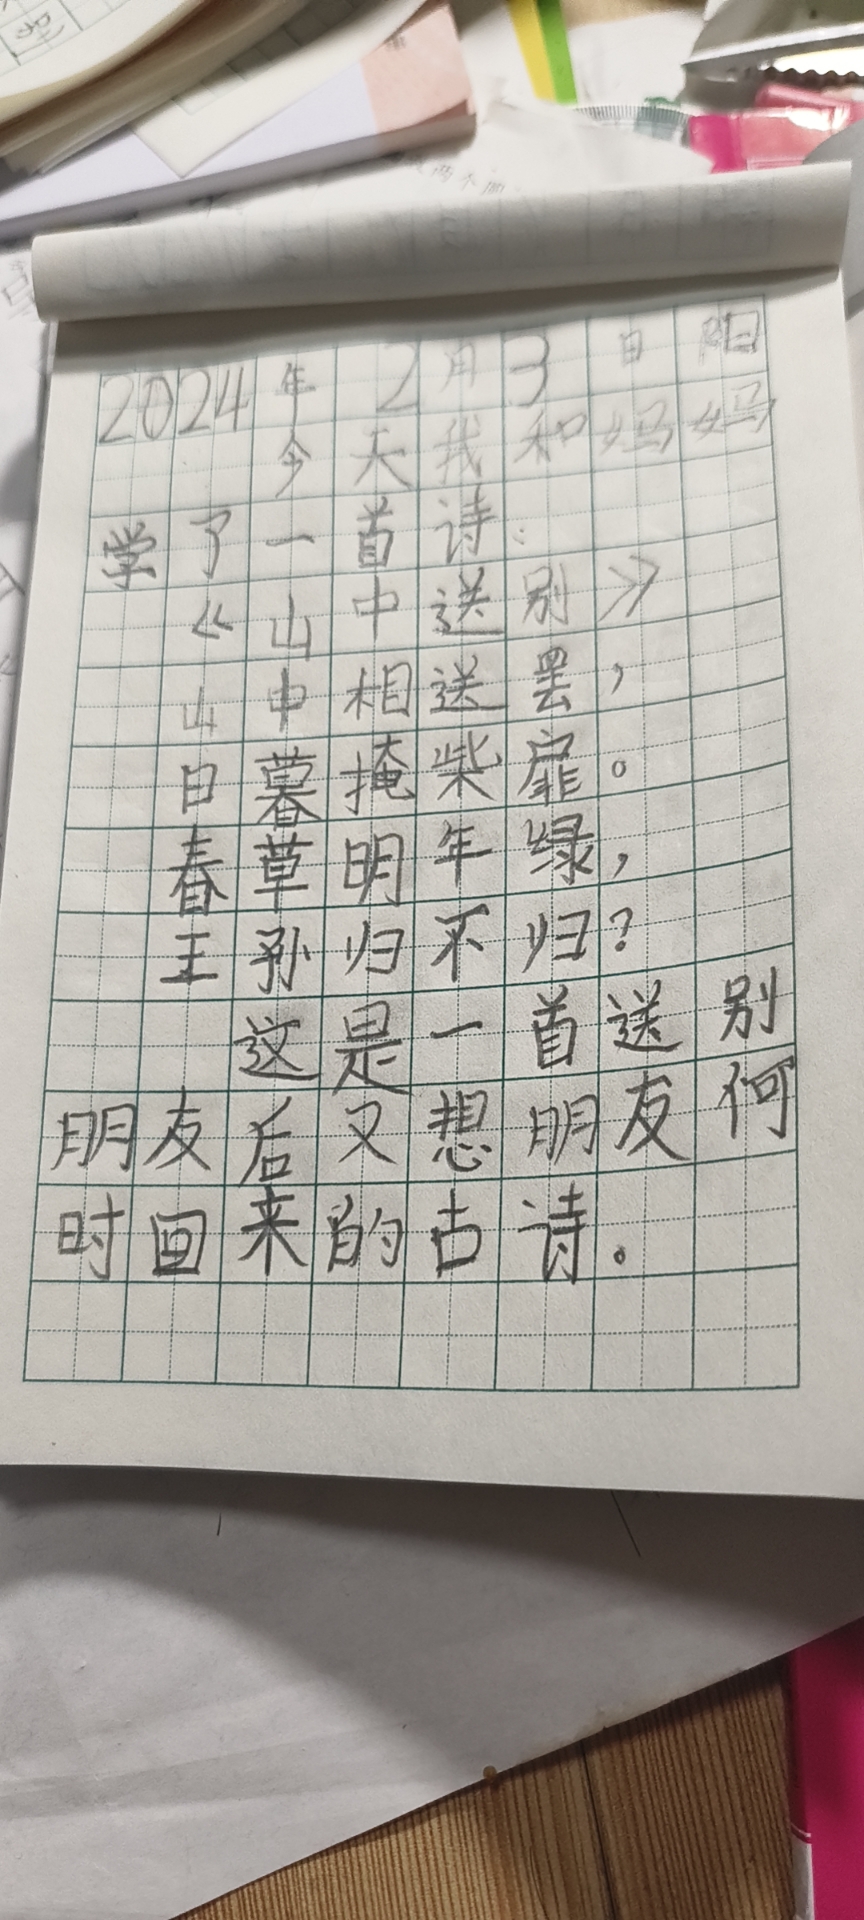 2024年2月3日阳
今天我和妈妈
学了一首诗:
《山中送别》
山中相送罢，
日暮掩柴扉。
春草明年绿，
王孙归不归?
这是一首送别
朋友后又想朋友何
时回来的古诗。